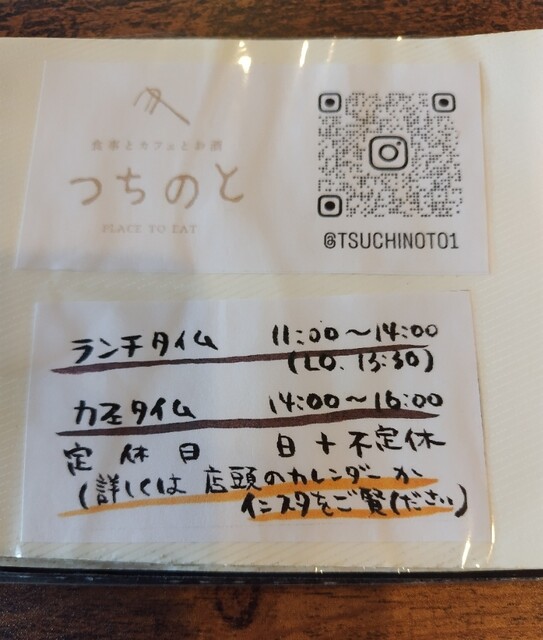 食事とカフェとお酒
つちのと
PLACE TO EAT
@TSUCHINOTO1
ランチタイム 11:00～14:00
(LO. 13:30)
カフェタイム 14:00～16:00
定休日 日+不定休
(詳しくは 店頭のカレンダーか
インスタをご覧ください)